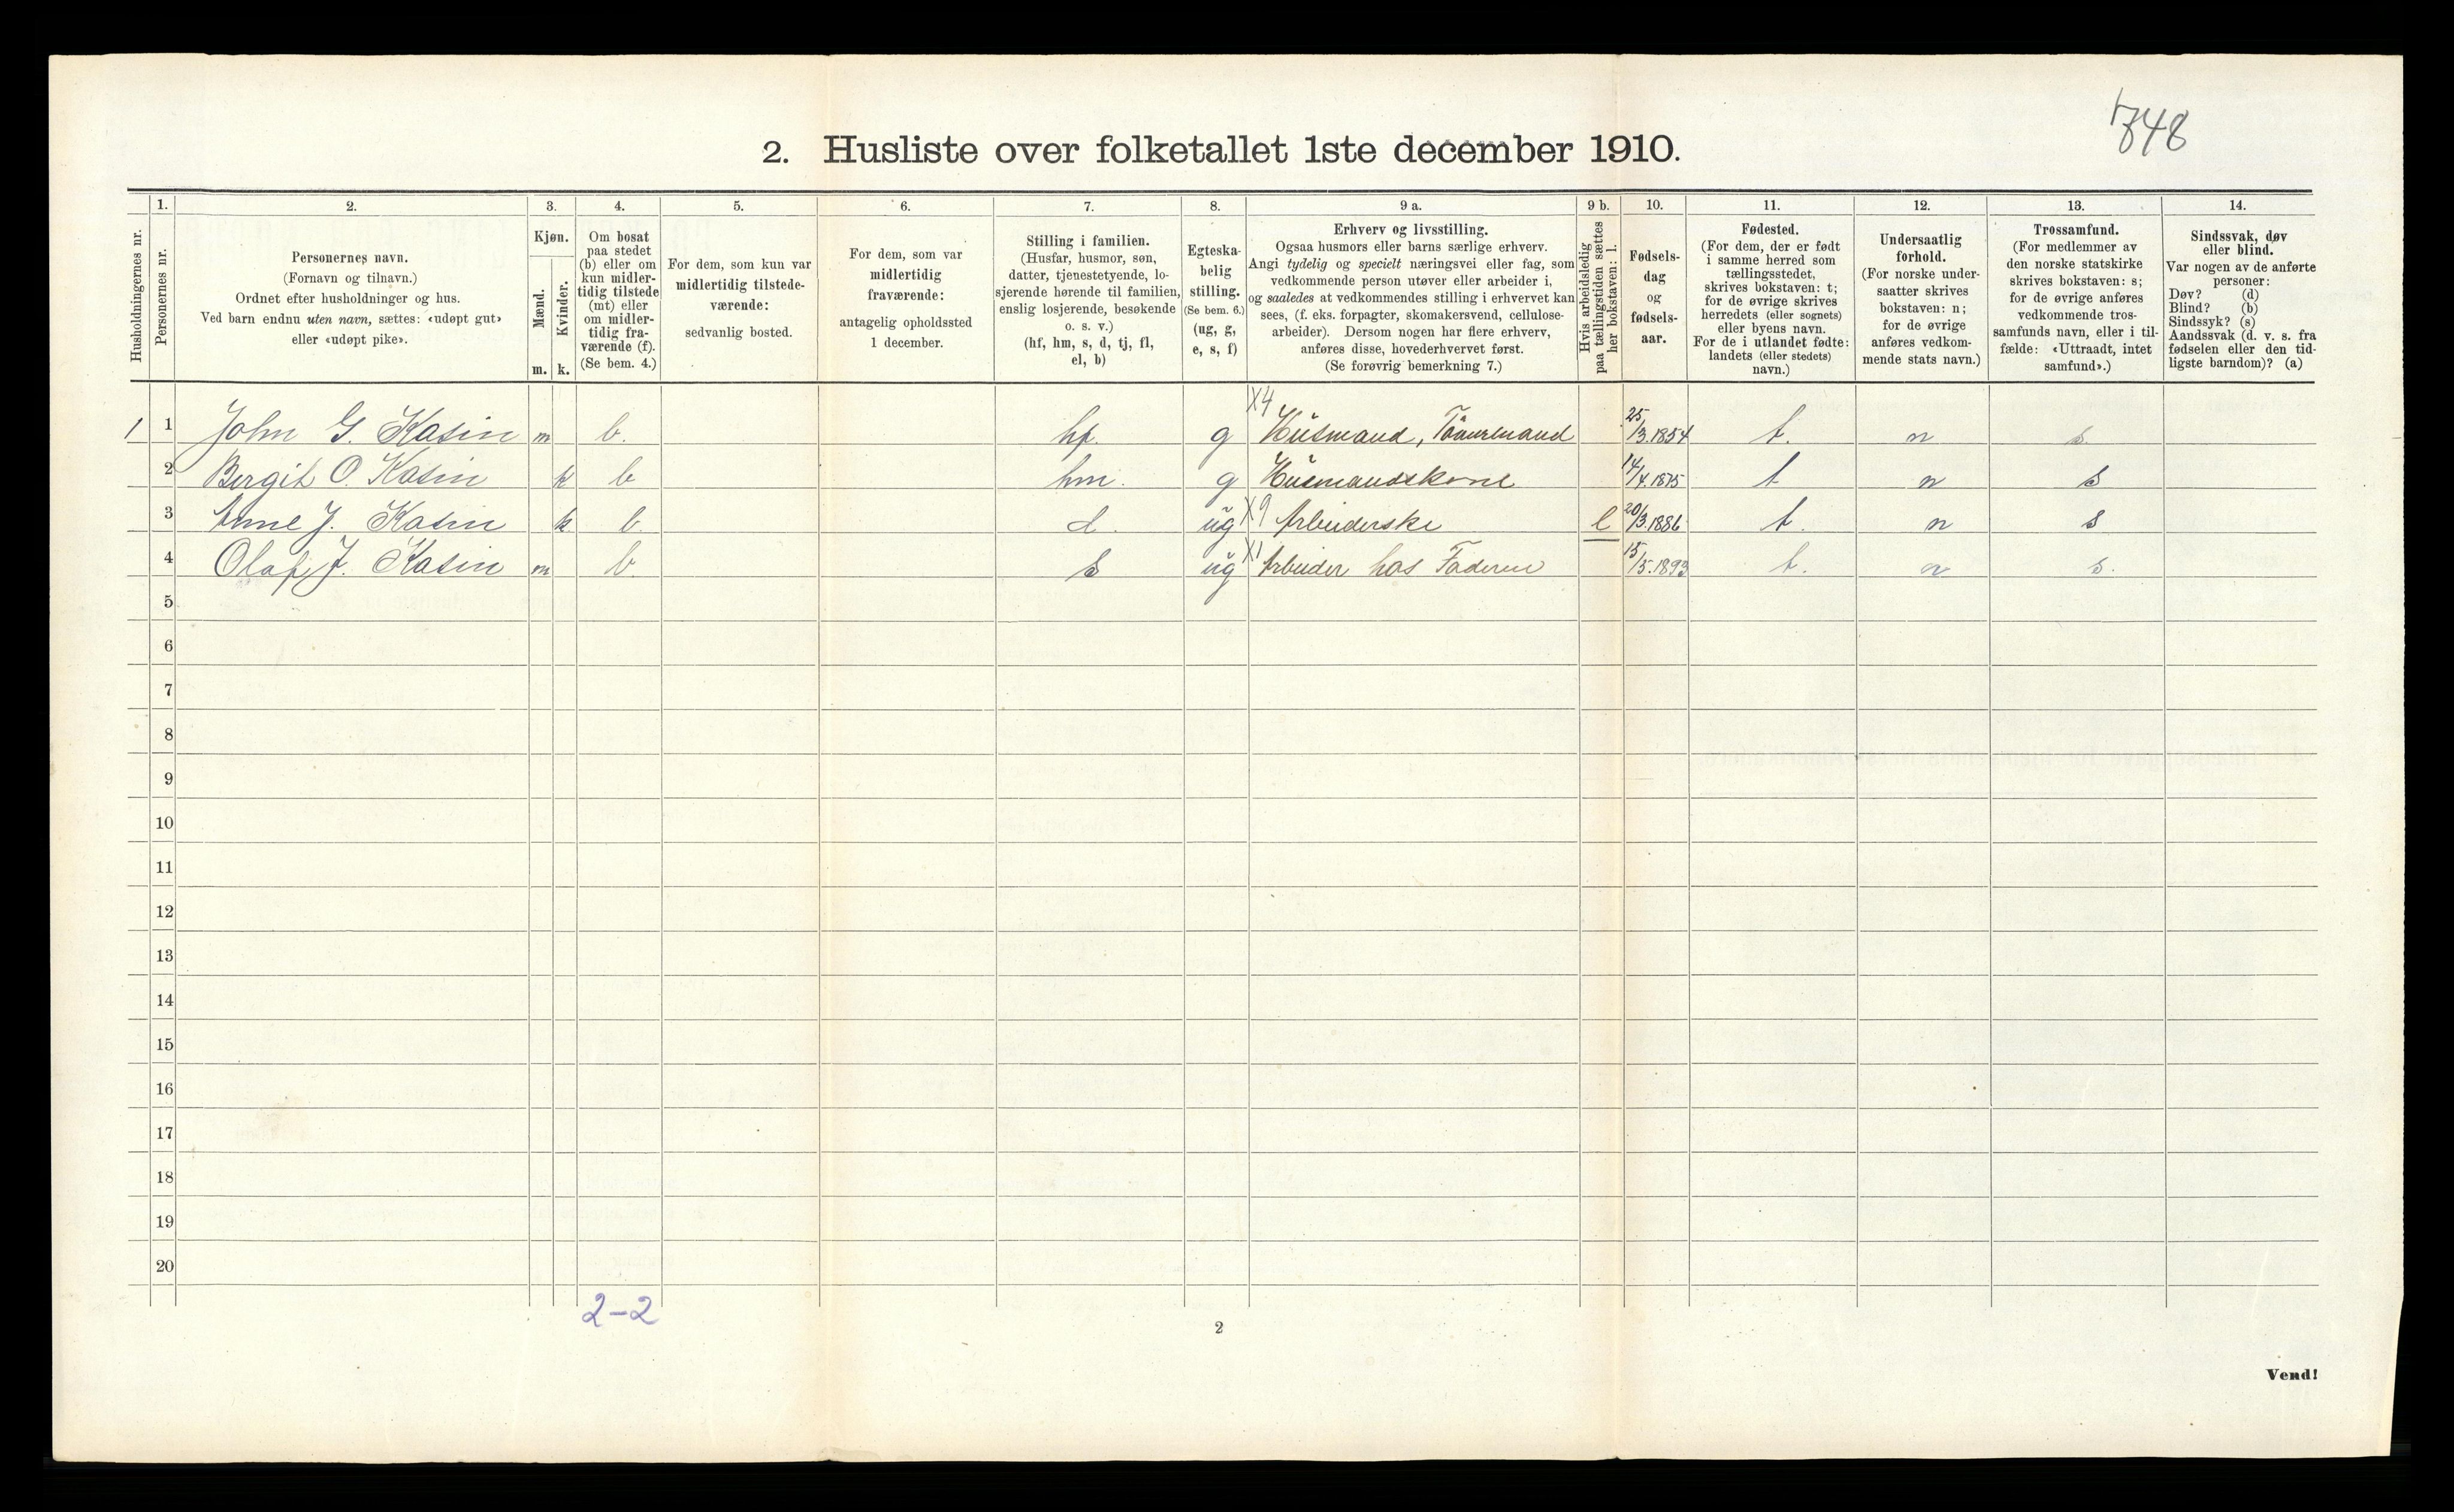 748
2. Husliste over folketallet 1ste december 1910.
Husholdningernes nr.
1.
Personernes nr.
2.
Personernes navn.
(Fornavn og tilnavn.)
Ordnet efter husholdninger og hus.
Ved barn endnu uten navn, sættes: «udøpt gut»
eller «udøpt pike».
3.
Kjøn.
Mænd.
Kvinder.
m. k.
4.
Om bosat
paa stedet
(b) eller om
kun midler-
tidig tilstede
(mt) eller
om midler-
tidig fra-
værende (f).
(Se bem. 4.)
5.
For dem, som kun var
midlertidig tilstede-
værende:
sedvanlig bosted.
6.
For dem, som var
midlertidig
fraværende:
antagelig opholdssted
1 december.
7.
Stilling i familien.
(Husfar, husmor, søn,
datter, tjenestetyende, lo-
sjerende hørende til familien,
enslig losjerende, besøkende
o. s. v.)
(hf, hm, s, d, tj, fl,
el, b)
8.
Egteska-
belig
stilling.
(Se bem. 6.)
(ug, g,
e, s, f)
9 a.
Erhverv og livsstilling.
Ogsaa husmors eller barns særlige erhverv.
Angi tydelig og specielt næringsvei eller fag, som
vedkommende person utøver eller arbeider i,
og saaledes at vedkommendes stilling i erhvervet kan
sees, (f. eks. forpagter, skomakersvend, cellulose-
arbeider). Dersom nogen har flere erhverv,
anføres disse, hovederhvervet først.
(Se forøvrig bemerkning 7.)
9 b.
Hvis arbeidsledig
paa tællingstiden sættes
her bokstaven: l.
10.
Fødsels-
dag
og
fødsels-
aar.
11.
Fødested.
(For dem, der er født
i samme herred som
tællingsstedet,
skrives bokstaven: t;
for de øvrige skrives
herredets (eller sognets)
eller byens navn.
For de i utlandet fødte:
landets (eller stedets)
navn.)
12.
Undersaatlig
forhold.
(For norske under-
saatter skrives
bokstaven: n;
for de øvrige
anføres vedkom-
mende stats navn.)
13.
Trossamfund.
(For medlemmer av
den norske statskirke
skrives bokstaven: s;
for de øvrige anføres
vedkommende tros-
samfunds navn, eller i til-
fælde: «Uttraadt, intet
samfund».)
14.
Sindssvak, døv
eller blind.
Var nogen av de anførte
personer:
Døv? (d)
Blind? (b)
Sindssyk? (s)
Aandssvak (d. v. s. fra
fødselen eller den tid-
ligste barndom)? (a)
1 1 John G. Kasin m b. hf. g X4 Husmand, Tømmermand 25/3.1854 t. n s.
2 Bergit O. Kasin k b hm. g Husmandskone 14/4.1875 t n s
3 Anne J. Kasin k b. d. ug X9 Arbeiderske l 20/3.1886 t. n s
4 Olaf J. Kasin m b. s ug X1 Arbeider hos Faderen 15/5.1893 t. n s.
5
6
7
8
9
10
11
12
13
14
15
16
17
18
19
20
2-2
2
Vend!